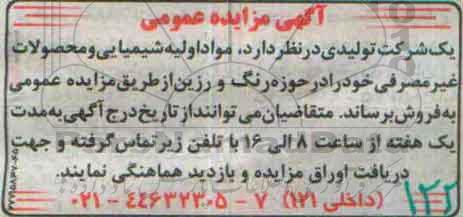 آگهی مزایده عمومی
یک شرکت تولیدی در نظر دارد، مواد اولیه شیمیایی و محصولات
غیر مصرفی خود را در حوزه رنگ و رزین از طریق مزایده عمومی
به فروش برساند. متقاضیان می توانند از تاریخ درج آگهی به مدت
یک هفته از ساعت ۸ الی ۱۶ با تلفن زیر تماس گرفته و جهت
دریافت اوراق مزایده و بازدید هماهنگی نمایند.
(داخلی ۱۲۱) ۷ - ۴۴۶۳۲۳۰۵ - ۰۲۱
۱۲۲